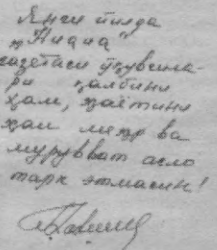 Янги йилда
„Нидид"
газетаси ўқувчила-
ри қалбини
ҳам, ҳаётини
ҳам меҳр ва
мурувват асло
тарк этмасин!